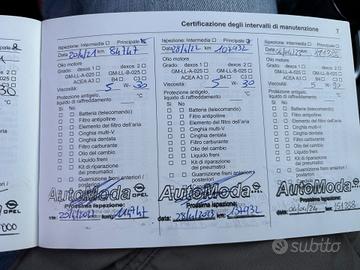 Certificazione degli intervalli di manutenzione
7
Ispezione: Intermedia Principale
data: 20/4/21 km
Olio motore
Grado: dexos 1 dexos 2
GM-LL-A-025 GM-LL-B-025
ACEA A3 B4 C3
Viscosità: 5 W- 30
Protezione antigelo,
liquido di raffreddamento °C
Sì No
Batteria (telecomando)
Filtro antipolline
Elemento del filtro dell'aria
Cinghia multi-V
Cinghia dentata
Filtro carburante
Olio del cambio
Liquido freni
Kit di riparazione
dei pneumatici
Guarnizione freni anteriori /
posteriori
AutoModa
OPEL
Prossima ispezione
Ispezione: Intermedia Principale
data: 28/4/22 km 107432
Olio motore
Grado: dexos 1 dexos 2
GM-LL-A-025 GM-LL-B-025
ACEA A3 B4 C3
Viscosità: 5 W- 30
Protezione antigelo,
liquido di raffreddamento °C
Sì No
Batteria (telecomando)
Filtro antipolline
Elemento del filtro dell'aria
Cinghia multi-V
Cinghia dentata
Filtro carburante
Olio del cambio
Liquido freni
Kit di riparazione
dei pneumatici
Guarnizioni freni anteriori /
posteriori
AutoModa
OPEL
Prossima ispezione
data: 28/4/2023 km 137432
Ispezione: Intermedia Principale
Olio motore
Grado: dexos 1 dexos 2
GM-LL-A-025 GM-LL-B-025
ACEA A3 B4 C3
Viscosità: 5 W-
Protezione antigelo,
liquido di raffreddamento °C
Sì No
Batteria (telecomando)
Filtro antipolline
Elemento del filtro dell'aria
Cinghia multi-V
Cinghia dentata
Filtro carburante
Olio del cambio
Liquido freni
Kit di riparazione
dei pneumatici
Guarnizioni freni anteriori /
posteriori
AutoModa
Prossima ispezione
data: km 151388
subito